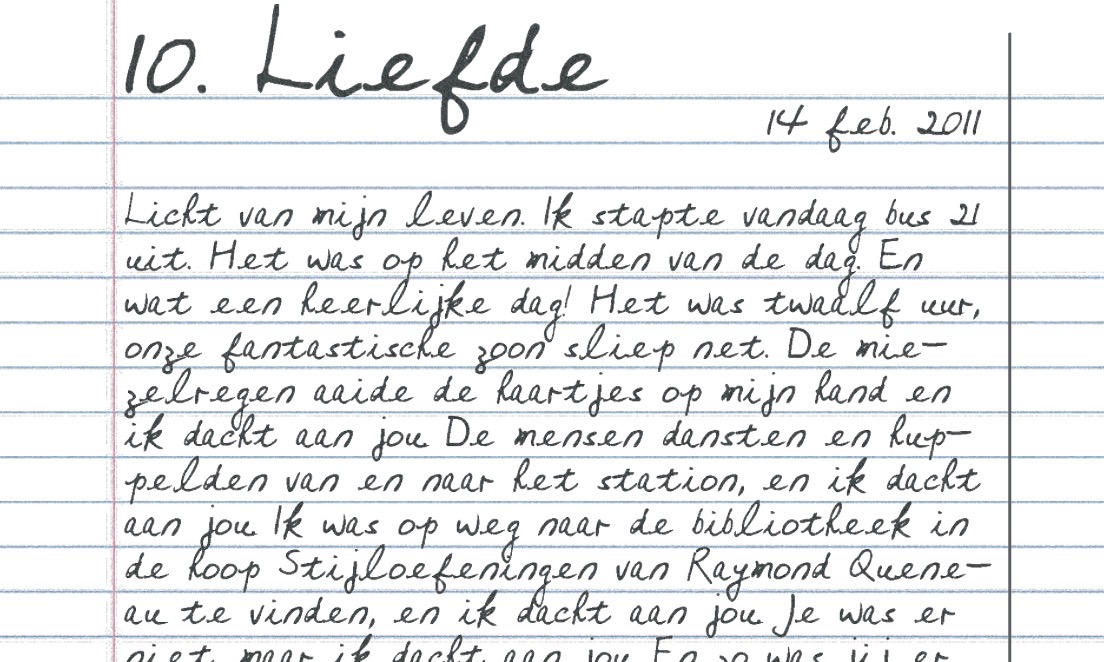 10. Liefde
14 feb. 2011
Licht van mijn leven. Ik stapte vandaag bus 21
uit. Het was op het midden van de dag. En
wat een heerlijke dag! Het was twaalf uur,
onze fantastische zoon sliep net. De mie-
zelregen aaide de haartjes op mijn hand en
ik dacht aan jou. De mensen dansten en hup-
pelden van en naar het station, en ik dacht
aan jou. Ik was op weg naar de bibliotheek in
de hoop Stijloefeningen van Raymond Quene-
au te vinden, en ik dacht aan jou. Je was er
niet, maar ik dacht aan jou. En zo was jij er